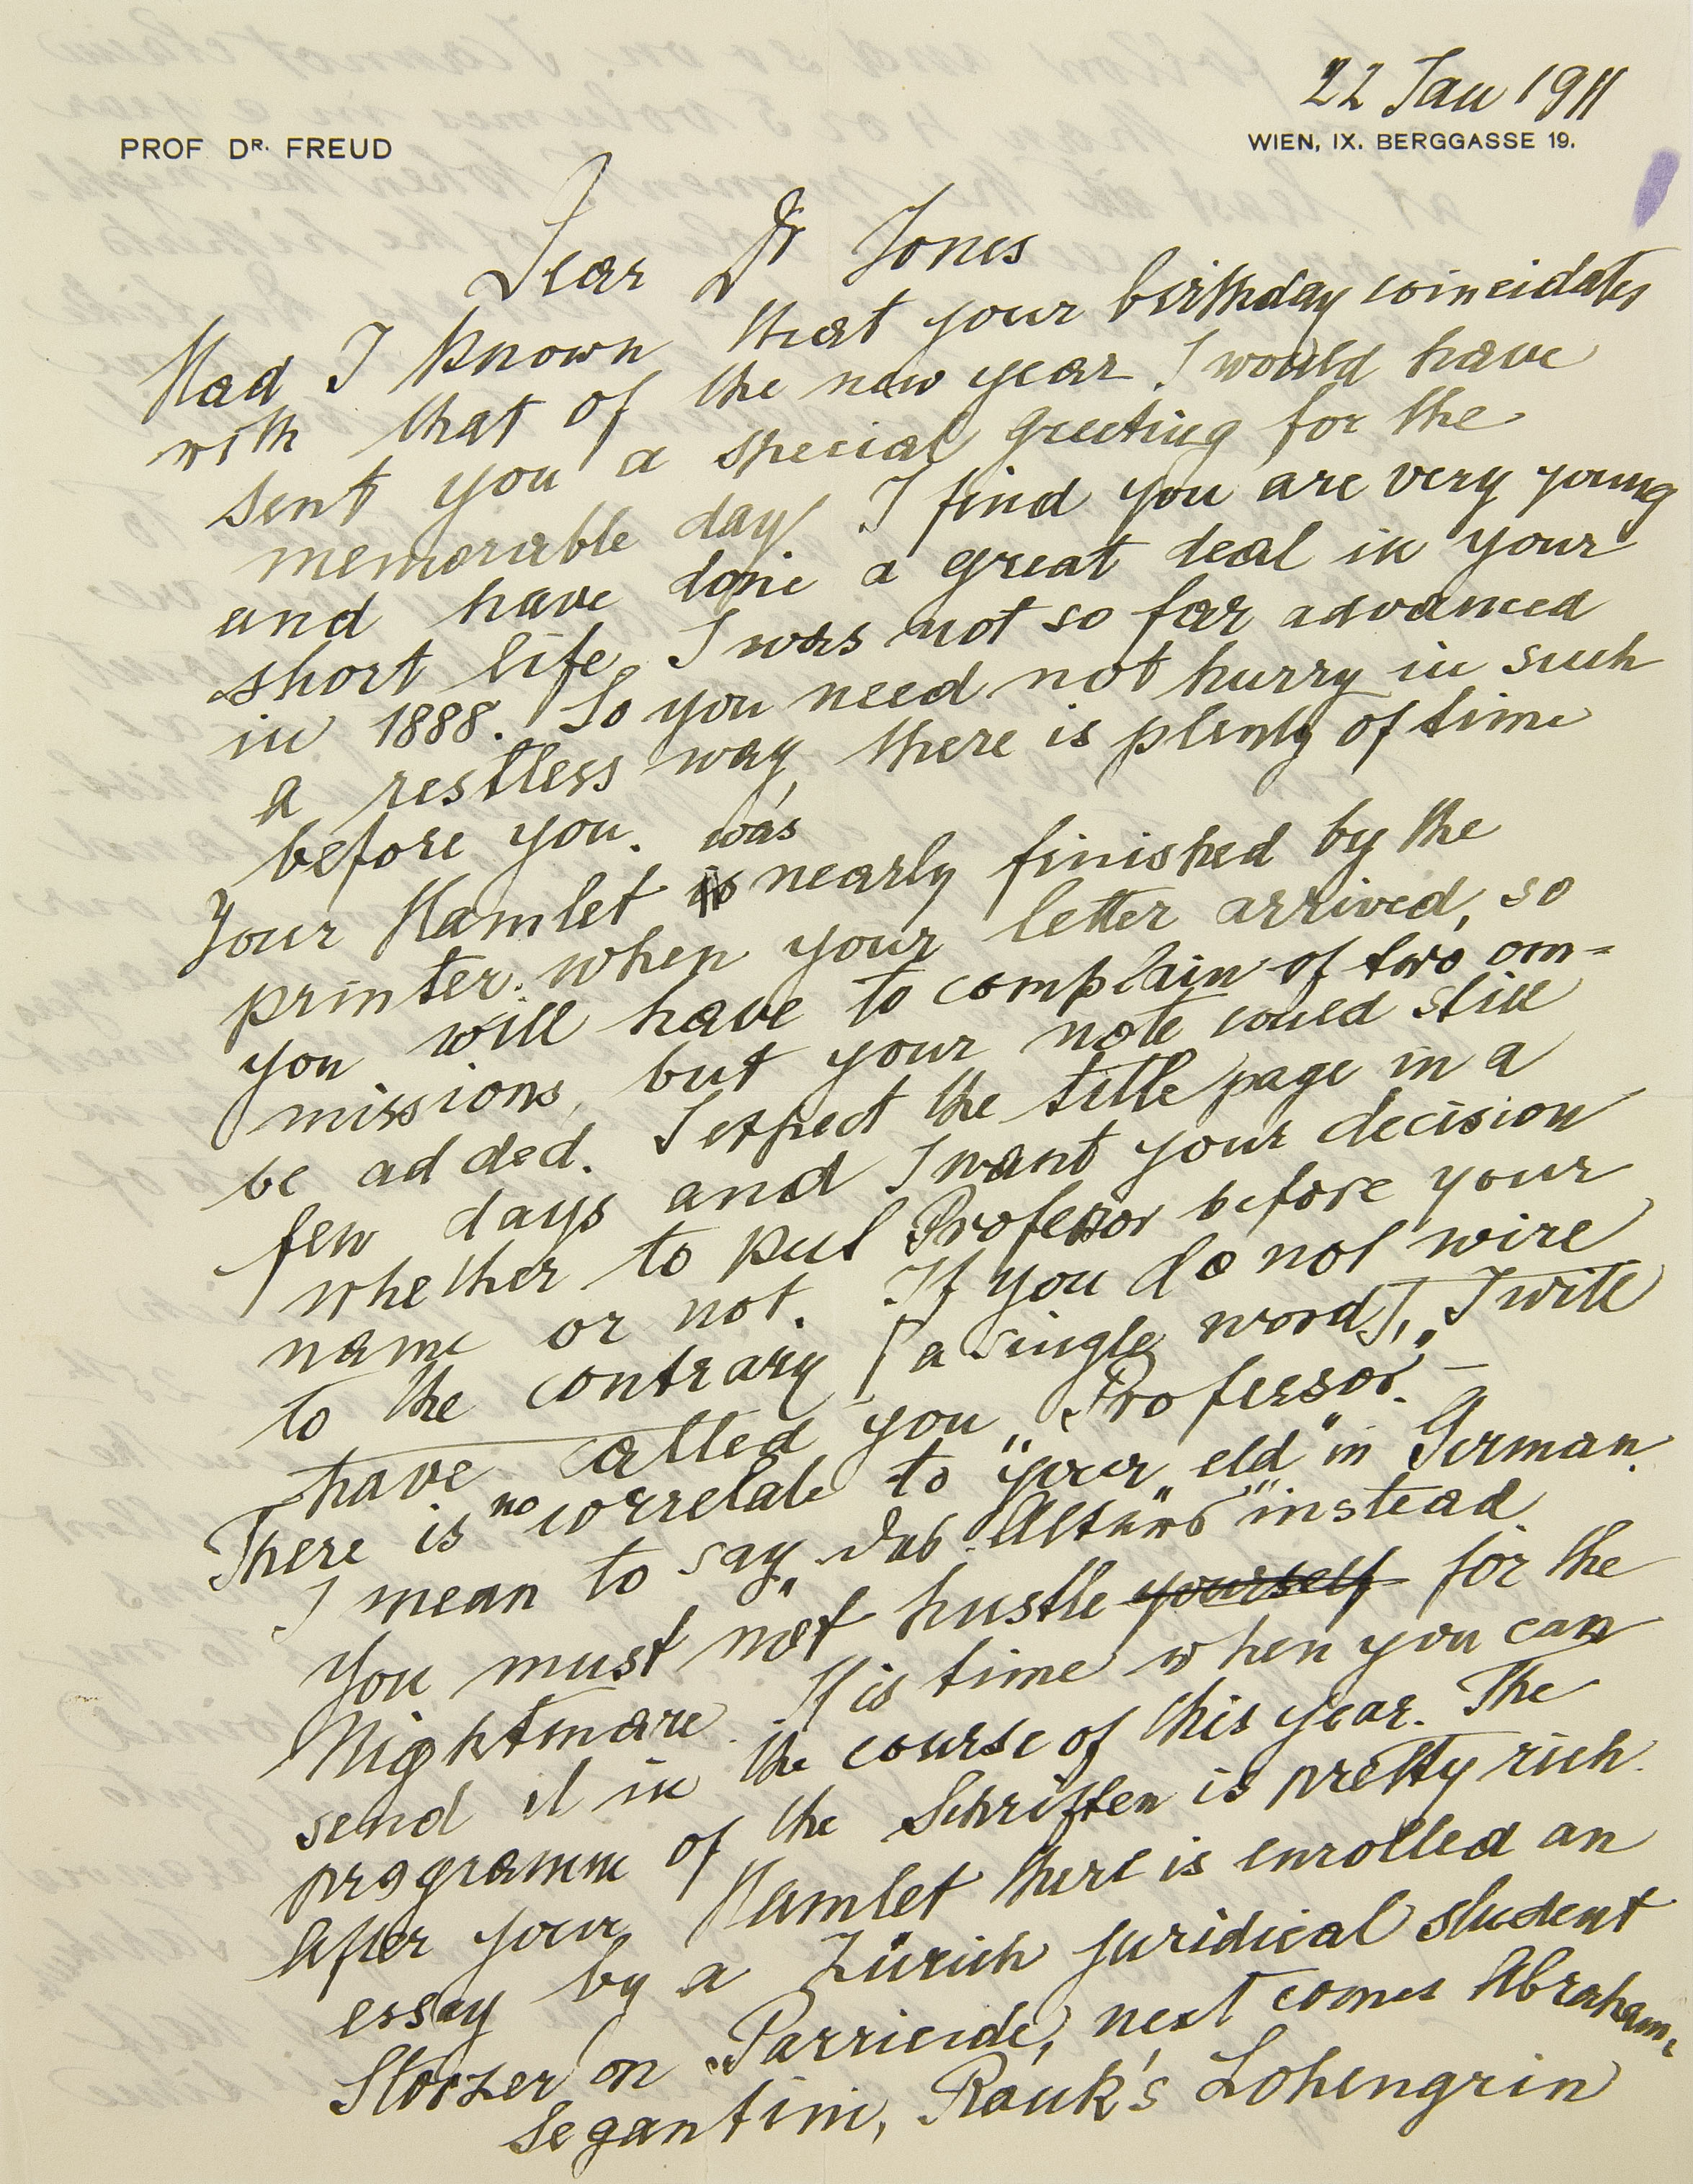 22 Jan 1911
PROF DR. FREUD
WIEN, IX. BERGGASSE 19.
Dear Dr Jones
Had I known that your birthday coincidates
with that of the new year I would have
sent you a special greeting for the
memorable day. I find you are very young
and have done a great deal in your
short life. I was not so far advanced
in 1888. So you need not hurry in such
a restless way, there is plenty of time
before you.
Your Hamlet was nearly finished by the
printer when your letter arrived, so
you will have to complain of two om-
missions, but your note could still
be added. I expect the title page in a
few days and I want your decision
whether to put Professor before your
name or not. If you do not wire
to the contrary [a single word], I will
have called you „Professor." —
There is no correlate to "your eld" in German.
I mean to say „des Alters" instead
You must not hustle yourself for the
Nightmare. It is time when you can
send it in the course of this year. The
programme of the Schriften is pretty rich.
After your Hamlet there is enrolled an
essay by a Zürich juridical student
Storzer on „Parricide, next comes Abraham,
Segantini, Rank's Lohengrin